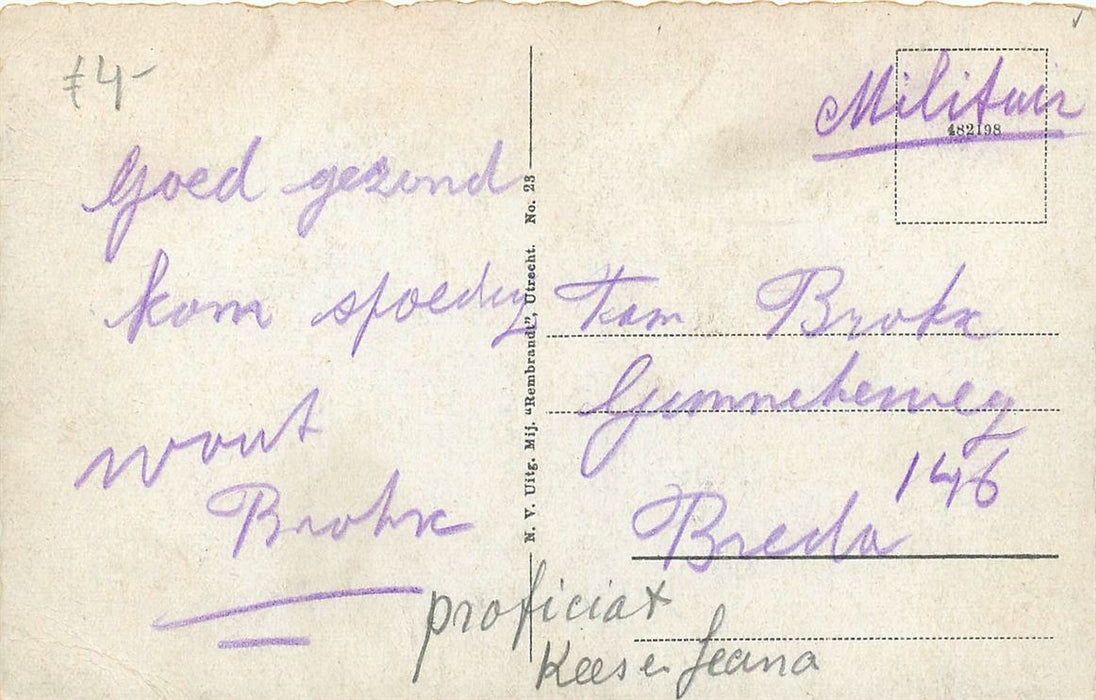 £4-
Goed gezond
kom spoedig
wout
Brokx
N. V. Uitg. Mij. "Rembrandt", Utrecht. No. 23
Militair
482198
Fam Brokx
Ginnekenweg
146
Breda
proficiat
Kees en Jeana